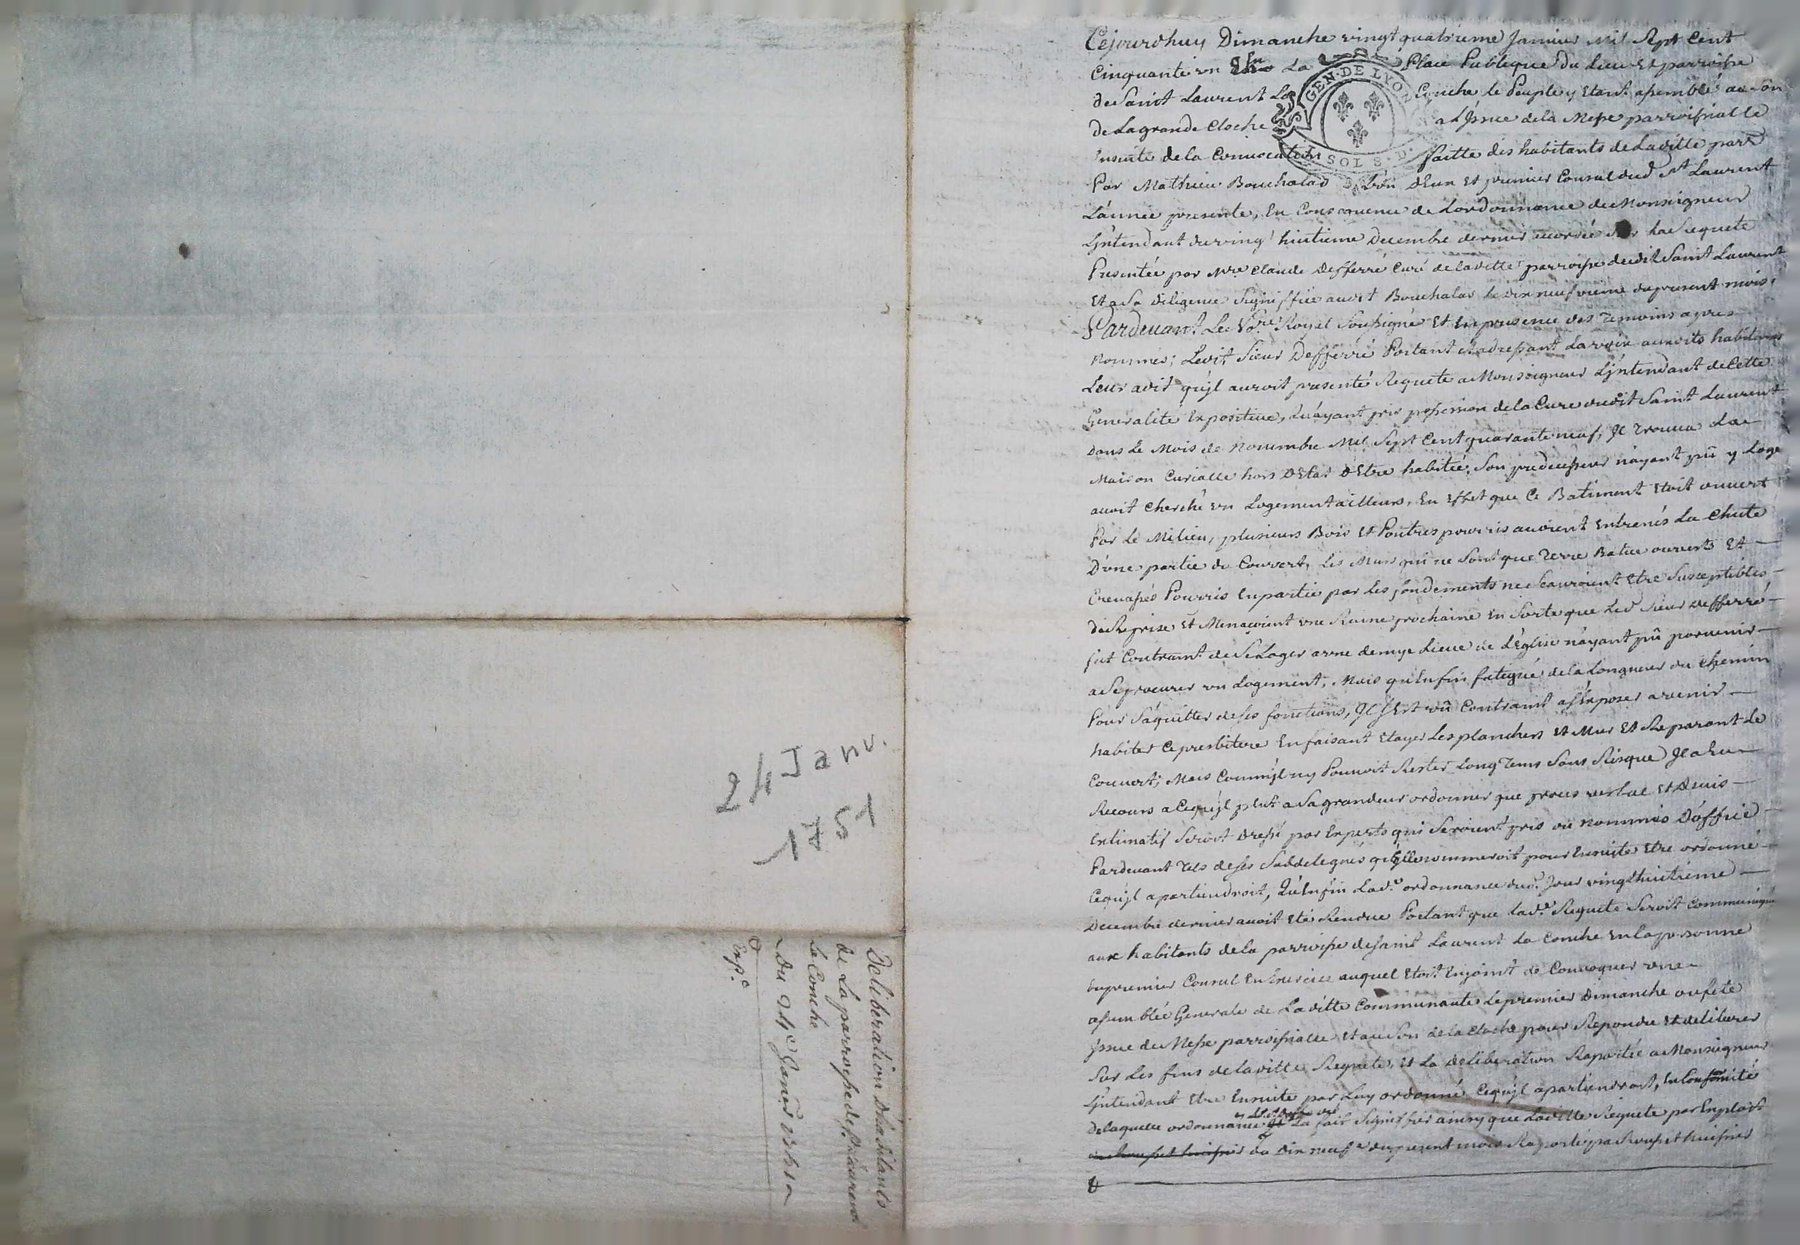 24 Janv.
1751
Deliberation D'habitants
de La parroisse de St Laurend
La Conche
Du 24e Janvier 1751
Exp.e
GEN. DE LYON
SOLS. D.
Cejourdhuy Dimanche vingt quatrieme Janvier Mil Sept Cent
Cinquante un La Place Publique du Lieu Et parroisse
de Saint Laurent La Conche le Peuple y Etant assemblé au Son
de La grande Cloche a L'Jssue de la Messe parroissialle
Ensuite de la Convocation faitte des habitants de Laditte parr
Par Mathieu Bouchalas L'un D'Eux Et premier Consul dud St Laurent
L'année presente, En Consequence de Lordonnance de Monseigneur
L'jntendant du vingt huitieme Decembre dernier Sur La Requete
Presentée par Mre Claude Defferré Curé de laditte parroisse dudit Saint Laurent
Et a Sa diligence Signiffiée audit Bouchalas le dix neufvieme du present mois,
Pardevant Le No.re Royal Soussigné Et En presence des Temoins apres
Nommés; Ledit Sieur Defferré Portant Et adressant La voix auxdits habitants
Leur a dit qu'jl auroit presenté Requete a Monseigneur L'jntendant de Cette
Generalité Expositive, Qu'ayant pris possession de la Cure dudit Saint Laurent
Dans Le Mois de Novembre Mil Sept Cent quarante neuf, Jl Trouva La
Maison Curialle hors D'Etat D'Etre habitée, Son predecesseur n'ayant pû y Loge
avoit Cherché un Logement ailleurs, En Effet que Ce Batiment Etoit ouvert
Par Le Milieu, plusieurs Bois Et Poutres pourris avoient Entrenés La Chute
D'une partie du Couvert, Les Murs qui ne Sont que Terre Batue ouverts Et
Crevassés Pourris En partie par Les fondements ne Scauroient Etre Susceptibles
de Reprise Et Menaçoient une Ruine prochaine En Sorte que Led Sieur Defferré
fut Contraint de Se Loger a une demye Lieue de L'Eglise n'ayant pû parvenir
a Se procurer un Logement, Mais qu'Enfin fatigué de la Longueur du Chemin
Pour S'aquitter de Ses fonctions, Jl S'Est vû Contraint a S'Exposer a venir
habiter Ce presbitere En faisant Etayer Les planchers Et Mur Et Reparant Le
Couvert; Mais Comm'jl n'y Pouvoit Rester Long Tems Sans Risque Jl a Eu
Recours a Cequ'jl plut a Sa grandeur ordonner que proces verbal Et Devis
Estimatif Seroit Dressé par Experts qui Seroient pris ou nommés D'office
Pardevant Tels de Ses Subdelegués qu'Elle nommeroit pour Ensuite Etre ordonné
Cequ'jl apartiendroit, Qu'Enfin Lad.e ordonnance dud. Jour vingt huitieme
Decembre dernier avoit Eté Rendue Portant que Lad.e Requete Seroit Communiquée
aux habitants de la parroisse de Saint Laurent La Conche En la personne
du premier Consul En Exercice auquel Etoit Enjoint de Convoquer une
assemblée Generale de Laditte Communauté Le premier Dimanche ou fete
Jssue de Messe parroissialle Et au Son de la Cloche pour Repondre Et deliberer
Sur Les fins de laditte Requete, Et La Deliberation Raportée a Monseigneur
L'jntendant Etre Ensuite par Luy ordonné Cequ'jl apartiendroit, En Conformité
de laquelle ordonnance La fait Signiffier ainsy que Laditte Requete par Exploit
du Dix neuf.e du present mois Raporté par huissier